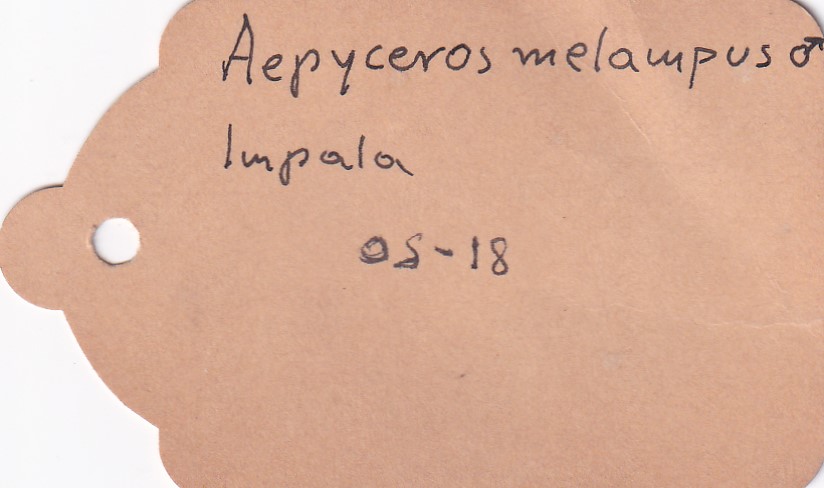 Aepyceros melampus ♂
Impala
OS-18